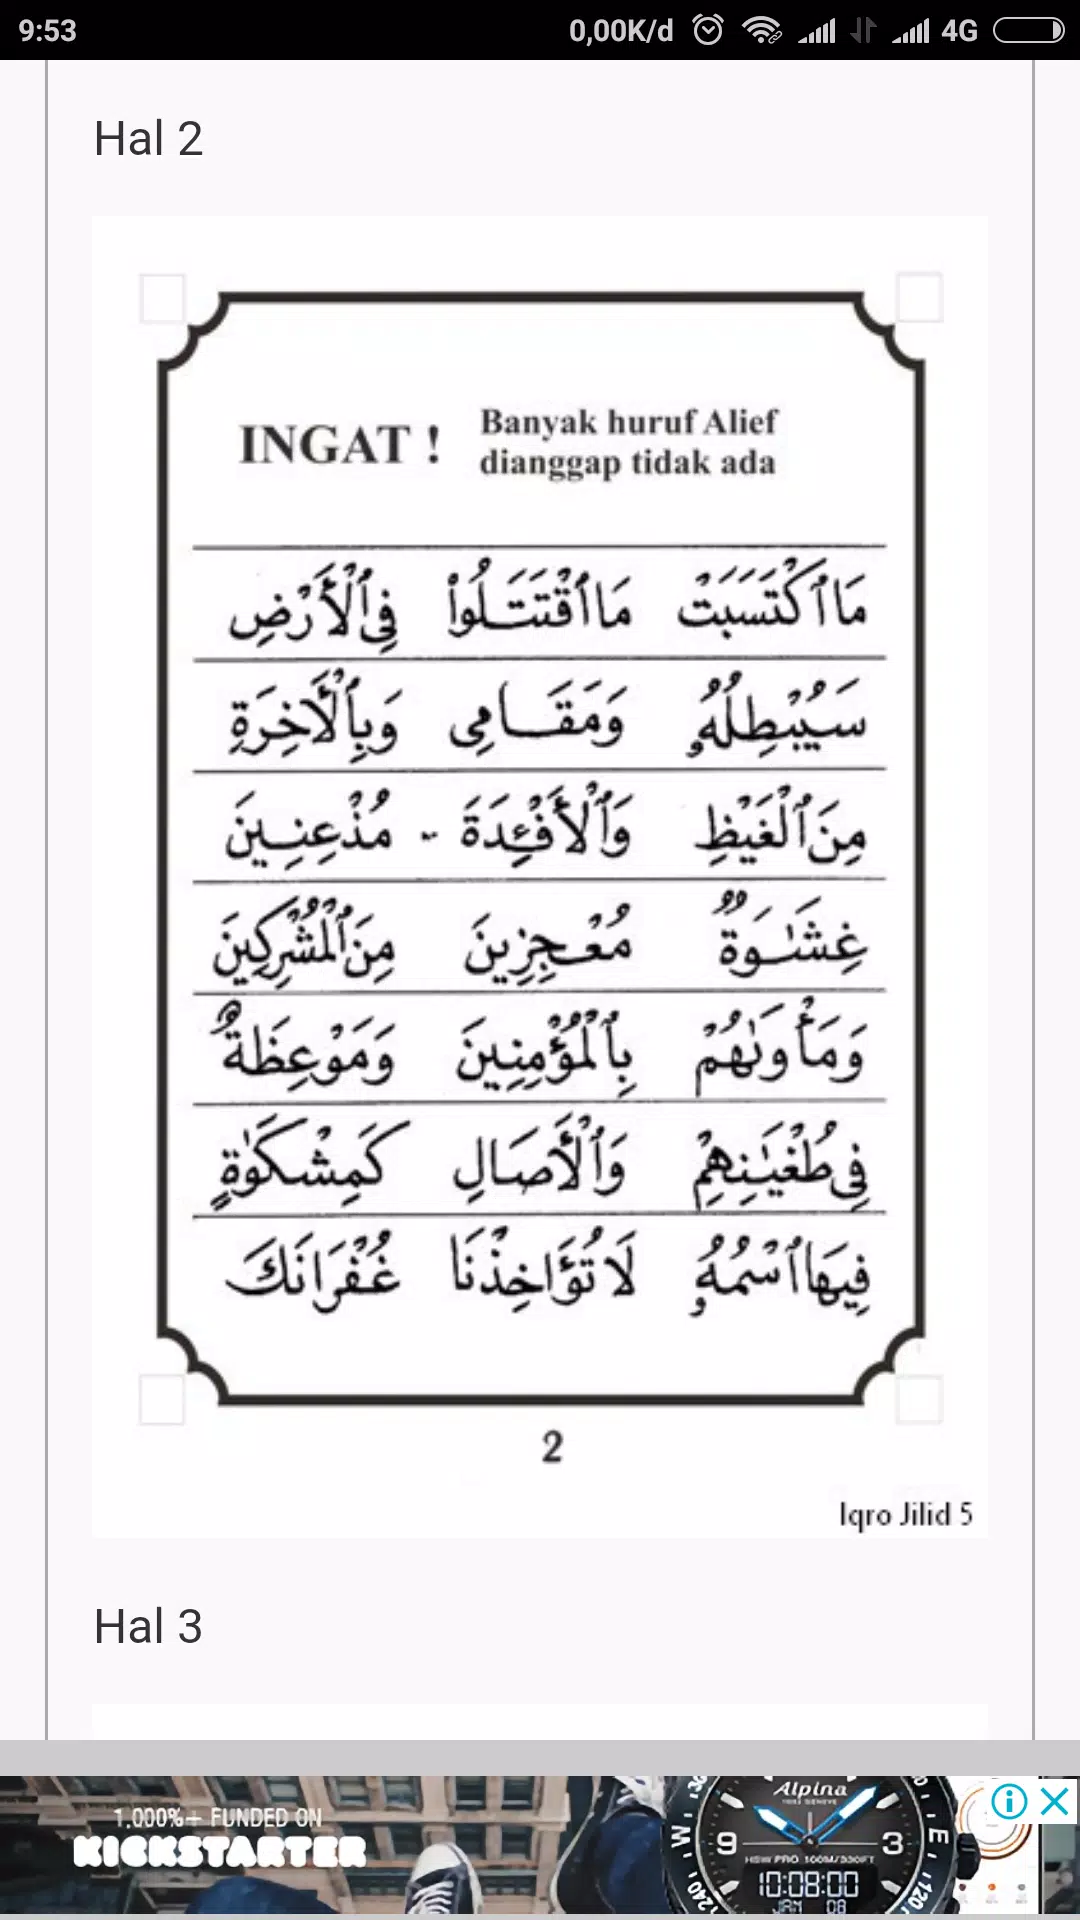 9:53 0,00K/d 4G
Hal 2
INGAT ! Banyak huruf Alief
dianggap tidak ada
مَا ٱكْتَسَبَتْ مَا ٱقْتَتَلُوا۟ فِى ٱلْأَرْضِ
سَيُبْطِلُهُۥ وَمَقَامِى وَبِٱلْأَخِرَةِ
مِنَ ٱلْغَيْظِ وَٱلْأَفْئِدَةَ - مُذْعِنِينَ
غِشَٰوَةٌ مُعْجِزِينَ مِنَ ٱلْمُشْرِكِينَ
وَمَأْوَىٰهُمْ بِٱلْمُؤْمِنِينَ وَمَوْعِظَةٌ
فِى طُغْيَٰنِهِمْ وَٱلْأَصَالِ كَمِشْكَوٰةٍ
فِيهَا ٱسْمُهُۥ لَا تُؤَاخِذْنَا غُفْرَانَكَ
2
Iqro Jilid 5
Hal 3
1.000%+ FUNDED ON
KICKSTARTER
Alpina
W 9 3 E
10:08:00
JAN 08
240 120